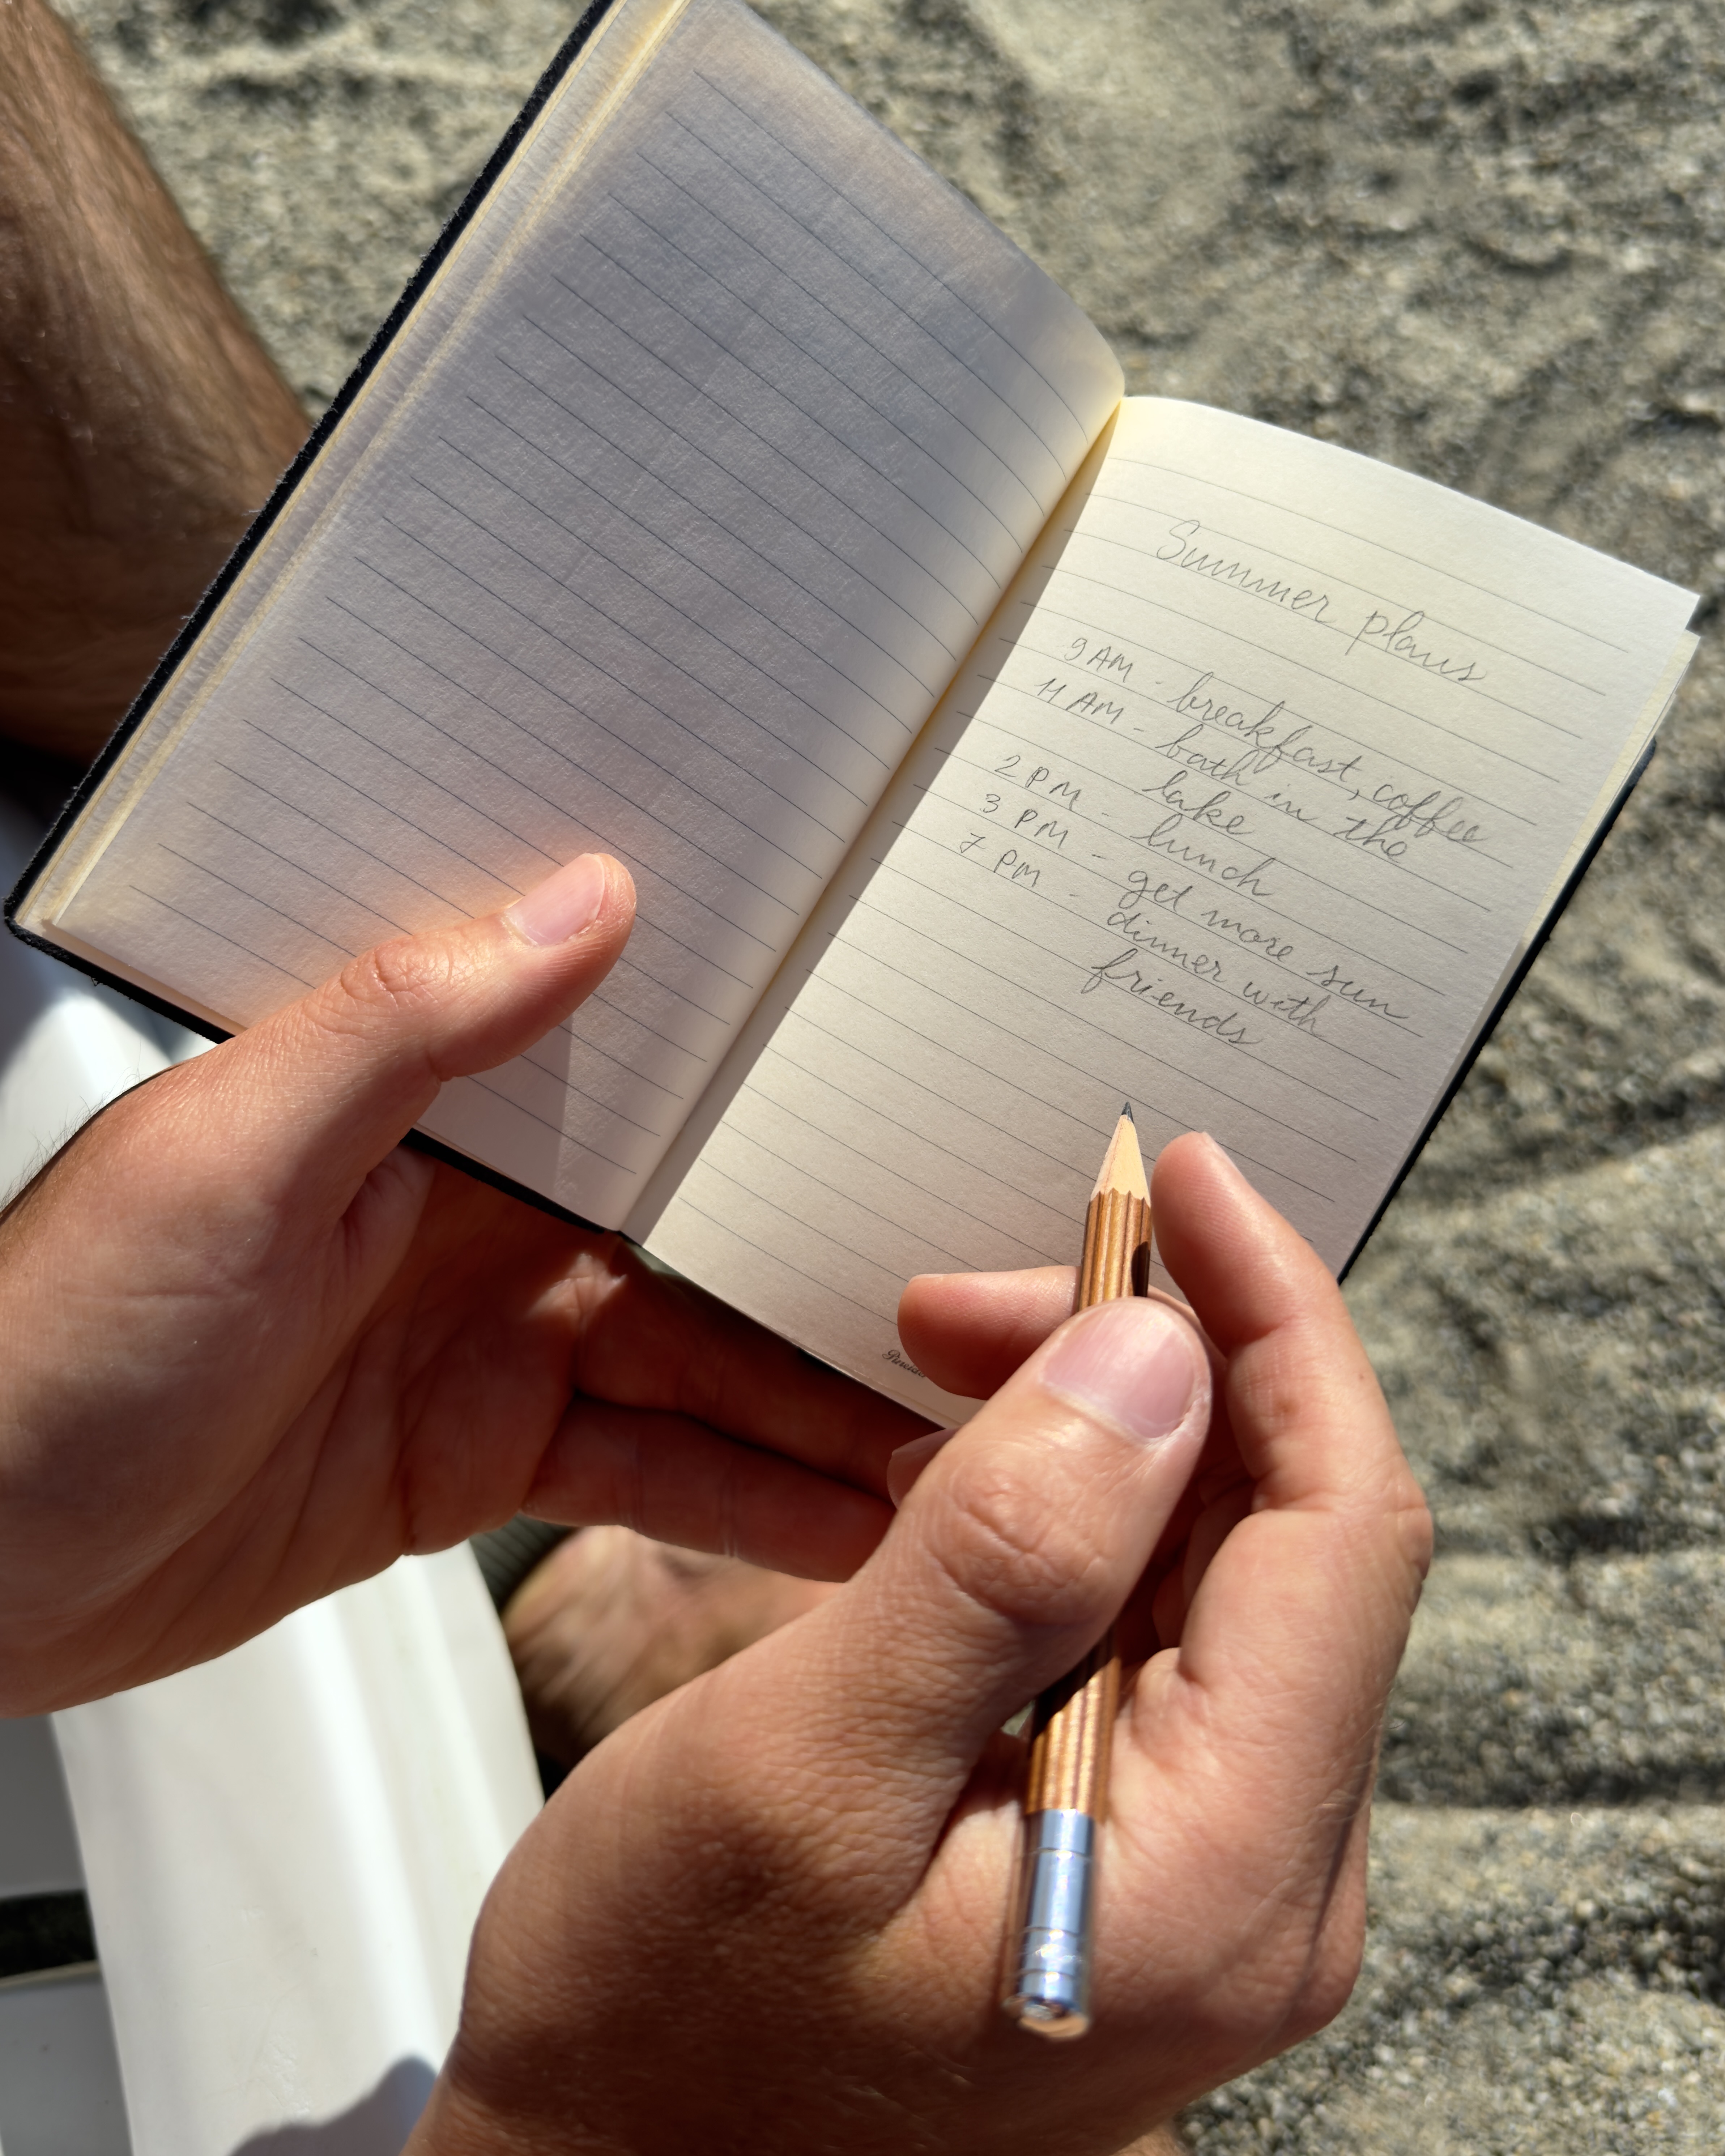 Summer plans
9 AM - breakfast, coffee
11 AM - bath in the
lake
2 PM - lunch
3 PM - get more sun
7 PM - dinner with
friends